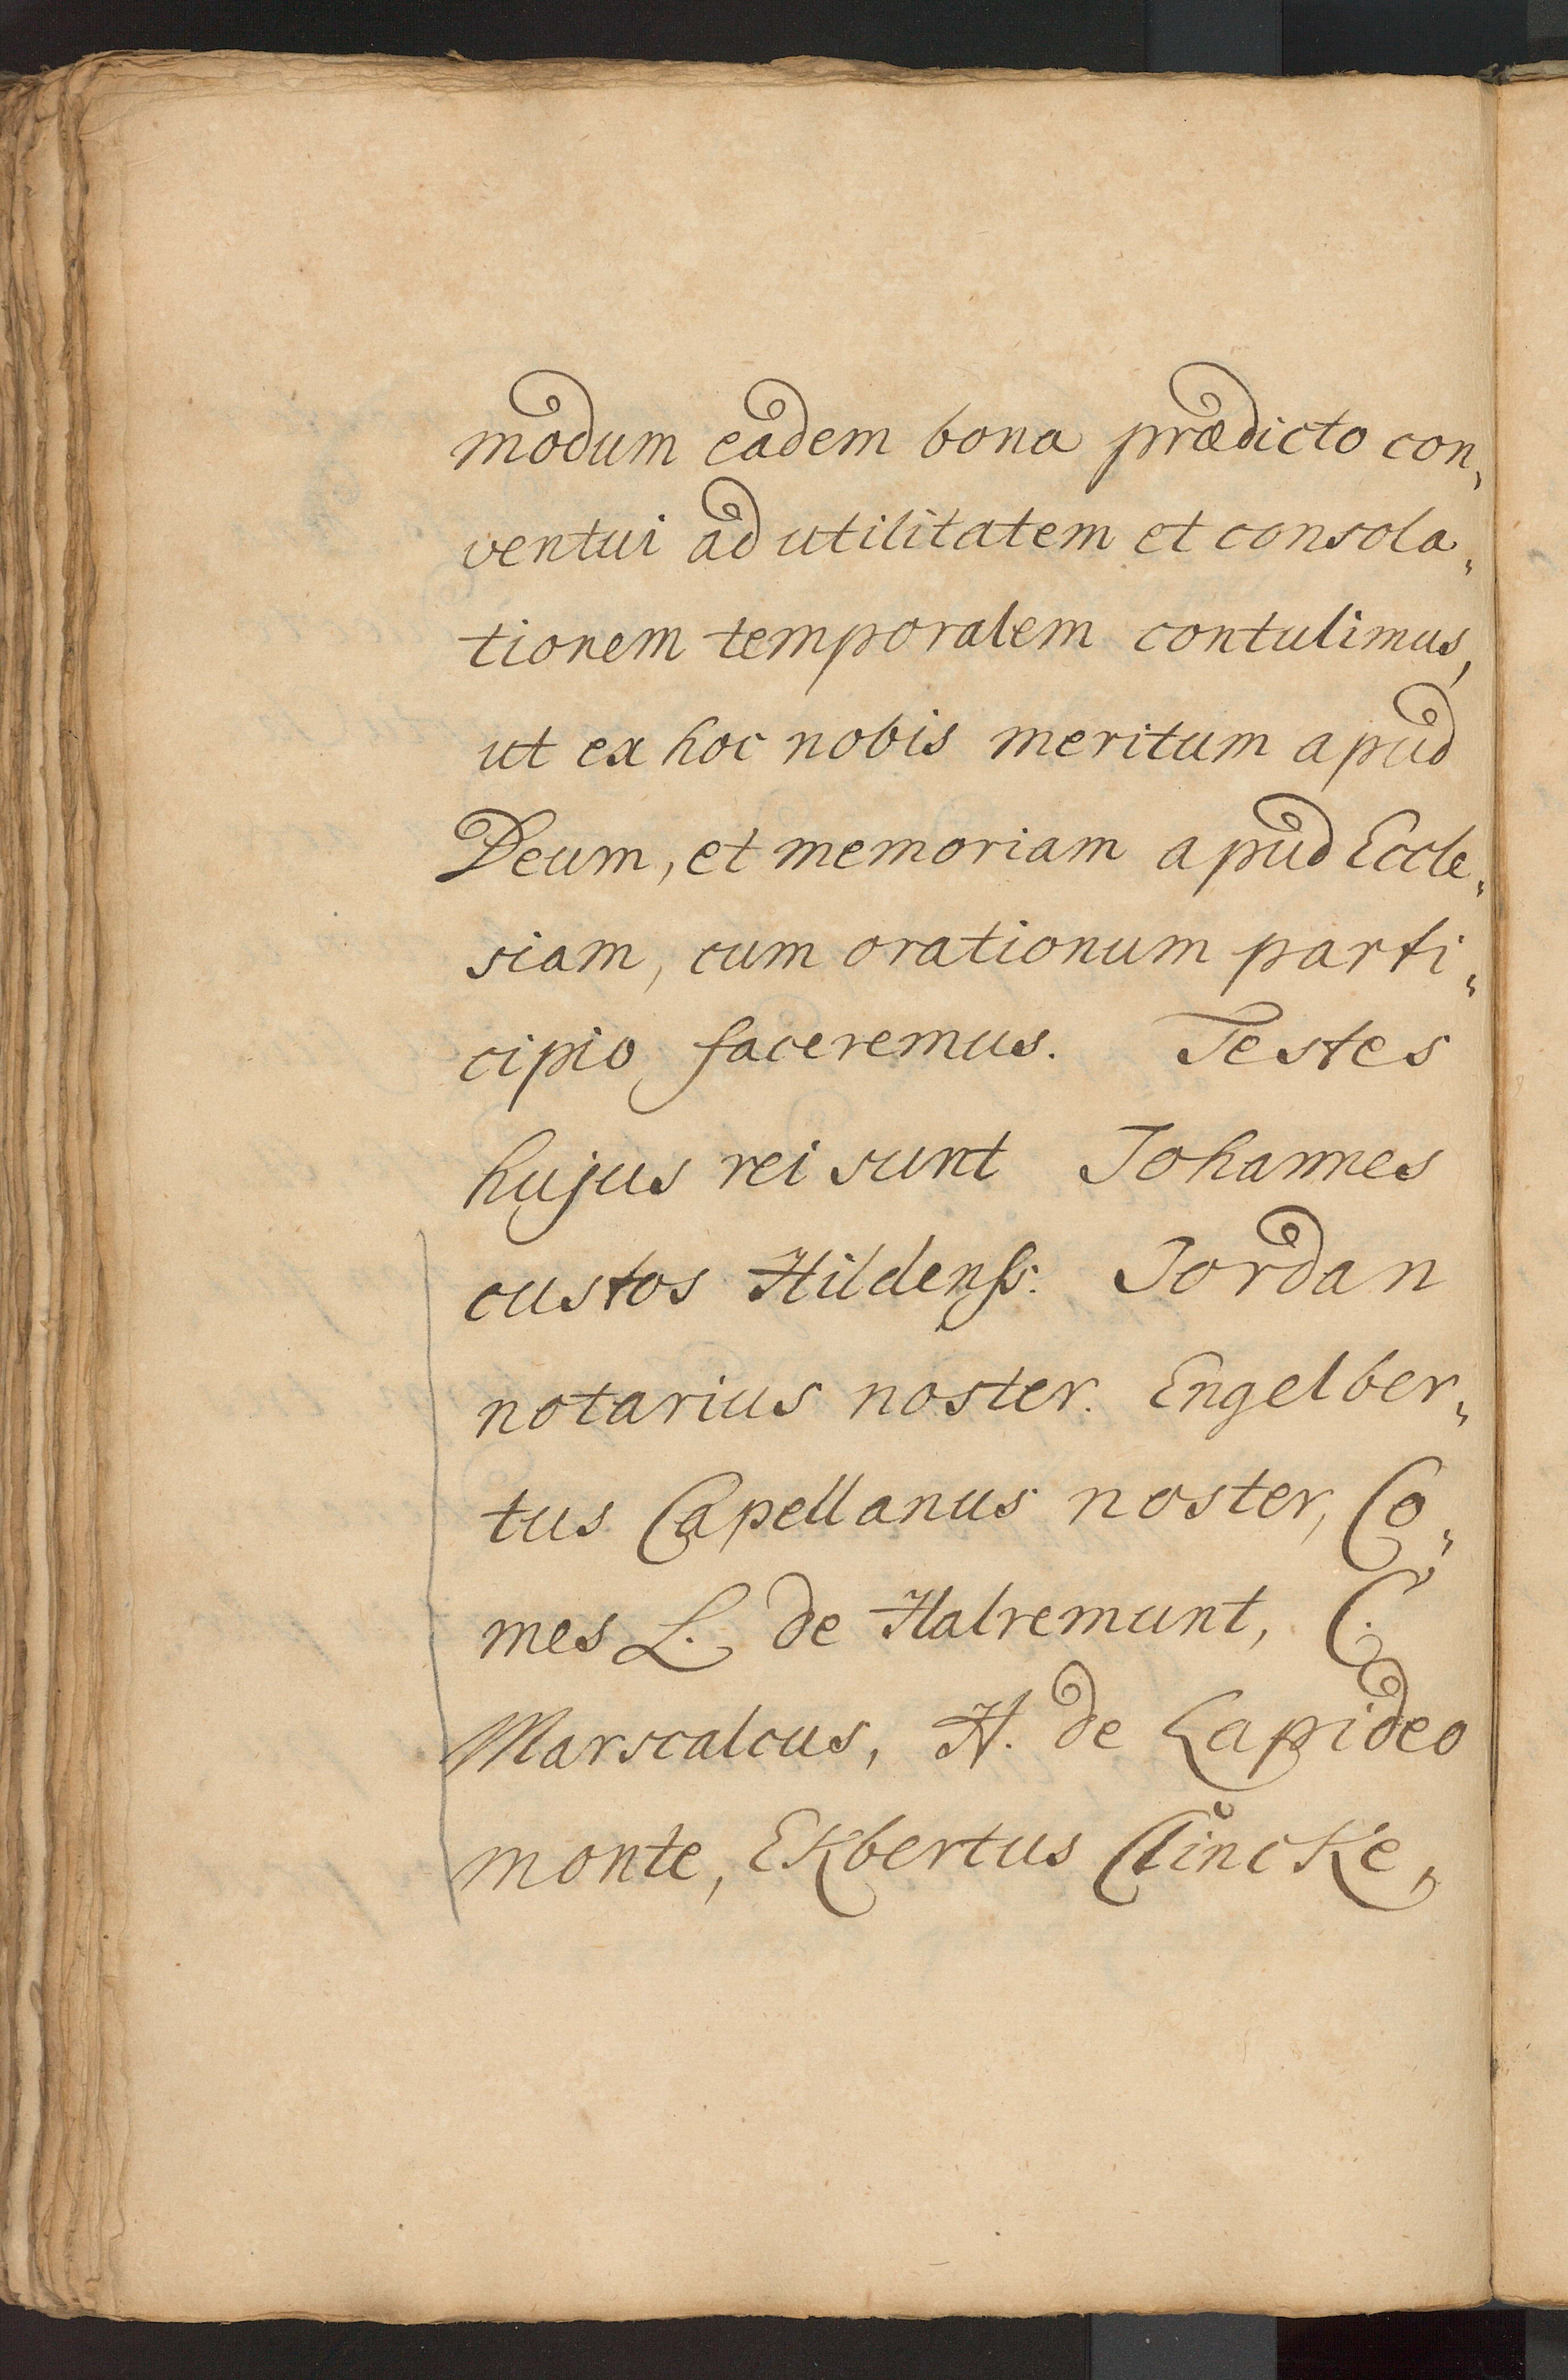 modum eadem bona prædicto con„
ventui ad utilitatem et consola„
tionem temporalem contulimus,
ut ex hoc nobis meritum apud
Deum, et memoriam apud Eccle„
siam, cum orationum parti„
cipio faceremus. Testes
hujus rei sunt Johannes
custos Hildenß: Jordan
notarius noster. Engelber„
tus Capellanus noster, Co„
mes L. de Halremunt, C.
Marscalcus, H. de Lapideo
monte, Ekbertus Clincke,